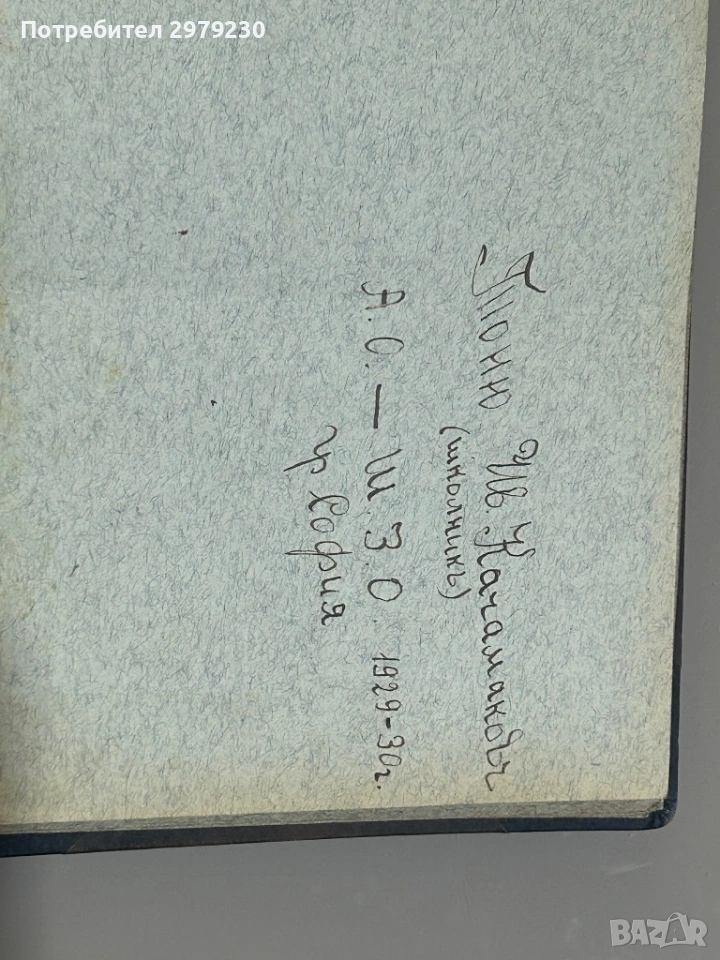 Потребител 2979230
Тоню Ив. Качамаковъ
(школникъ)
А. О. – Ш. З. О. 1929-30г.
гр София
BAZAR